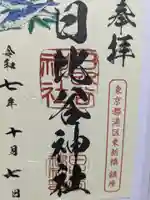 奉拝
日比谷神社
東京都港区東新橋鎮座
令和七年十月七日